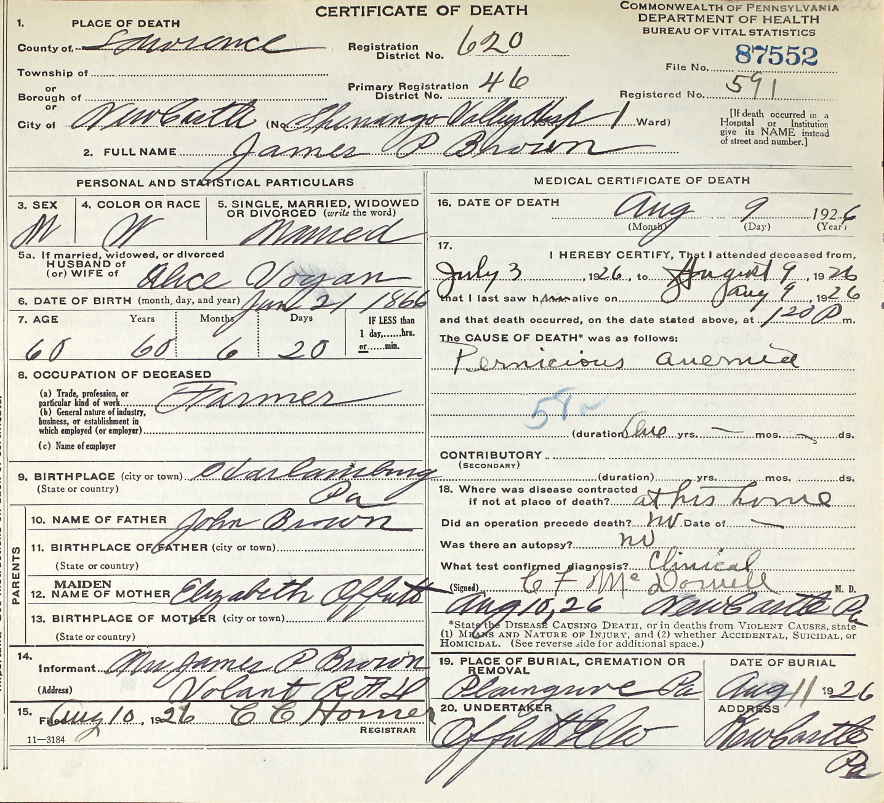 CERTIFICATE OF DEATH
COMMONWEALTH OF PENNSYLVANIA
DEPARTMENT OF HEALTH
BUREAU OF VITAL STATISTICS
1. PLACE OF DEATH
County of Lawrence
Registration District No. 620
File No. 87552
Township of
or
Borough of
Primary Registration District No. 46
Registered No. 591
or
City of New Castle (No. Shenango Valley Hosp 1 Ward)
[If death occurred in a Hospital or Institution give its NAME instead of street and number.]
2. FULL NAME James P Brown
PERSONAL AND STATISTICAL PARTICULARS
3. SEX M
4. COLOR OR RACE W
5. SINGLE, MARRIED, WIDOWED OR DIVORCED (write the word) Married
5a. If married, widowed, or divorced
HUSBAND of
(or) WIFE of Alice Vogan
6. DATE OF BIRTH (month, day, and year) Jan 21 1866
7. AGE Years Months Days IF LESS than
1 day,......hrs.
or......min.
60 60 6 20
8. OCCUPATION OF DECEASED
(a) Trade, profession, or particular kind of work Farmer
(b) General nature of industry, business, or establishment in which employed (or employer)
(c) Name of employer
9. BIRTHPLACE (city or town)
(State or country) Pa
PARENTS
10. NAME OF FATHER John Brown
11. BIRTHPLACE OF FATHER (city or town)
(State or country)
12. MAIDEN NAME OF MOTHER Elizabeth Offutt
13. BIRTHPLACE OF MOTHER (city or town)
(State or country)
14.
Informant Mrs James P Brown
(Address) Volant R
15.
Filed Aug 10, 1926 C C Horner
REGISTRAR
11—3184
MEDICAL CERTIFICATE OF DEATH
16. DATE OF DEATH Aug 9 1926
(Month) (Day) (Year)
17. I HEREBY CERTIFY, That I attended deceased from
July 3 1926, to August 9, 1926
that I last saw him alive on Aug 9, 1926
and that death occurred, on the date stated above, at 120 P m.
The CAUSE OF DEATH* was as follows:
Pernicious anemia
(duration) yrs. — mos. — ds.
CONTRIBUTORY
(SECONDARY)
(duration) yrs. mos. ds.
18. Where was disease contracted
if not at place of death? at his home
Did an operation precede death? no Date of —
Was there an autopsy? no
What test confirmed diagnosis? Clinical
(Signed) C F McDowell M. D.
Aug 10, 26 New Castle Pa
*State the DISEASE CAUSING DEATH, or in deaths from VIOLENT CAUSES, state
(1) MEANS AND NATURE OF INJURY, and (2) whether ACCIDENTAL, SUICIDAL, or
HOMICIDAL. (See reverse side for additional space.)
19. PLACE OF BURIAL, CREMATION OR REMOVAL
Plaingrove Pa
DATE OF BURIAL
Aug 11 1926
20. UNDERTAKER
Offutt & Co
ADDRESS
New Castle
Pa